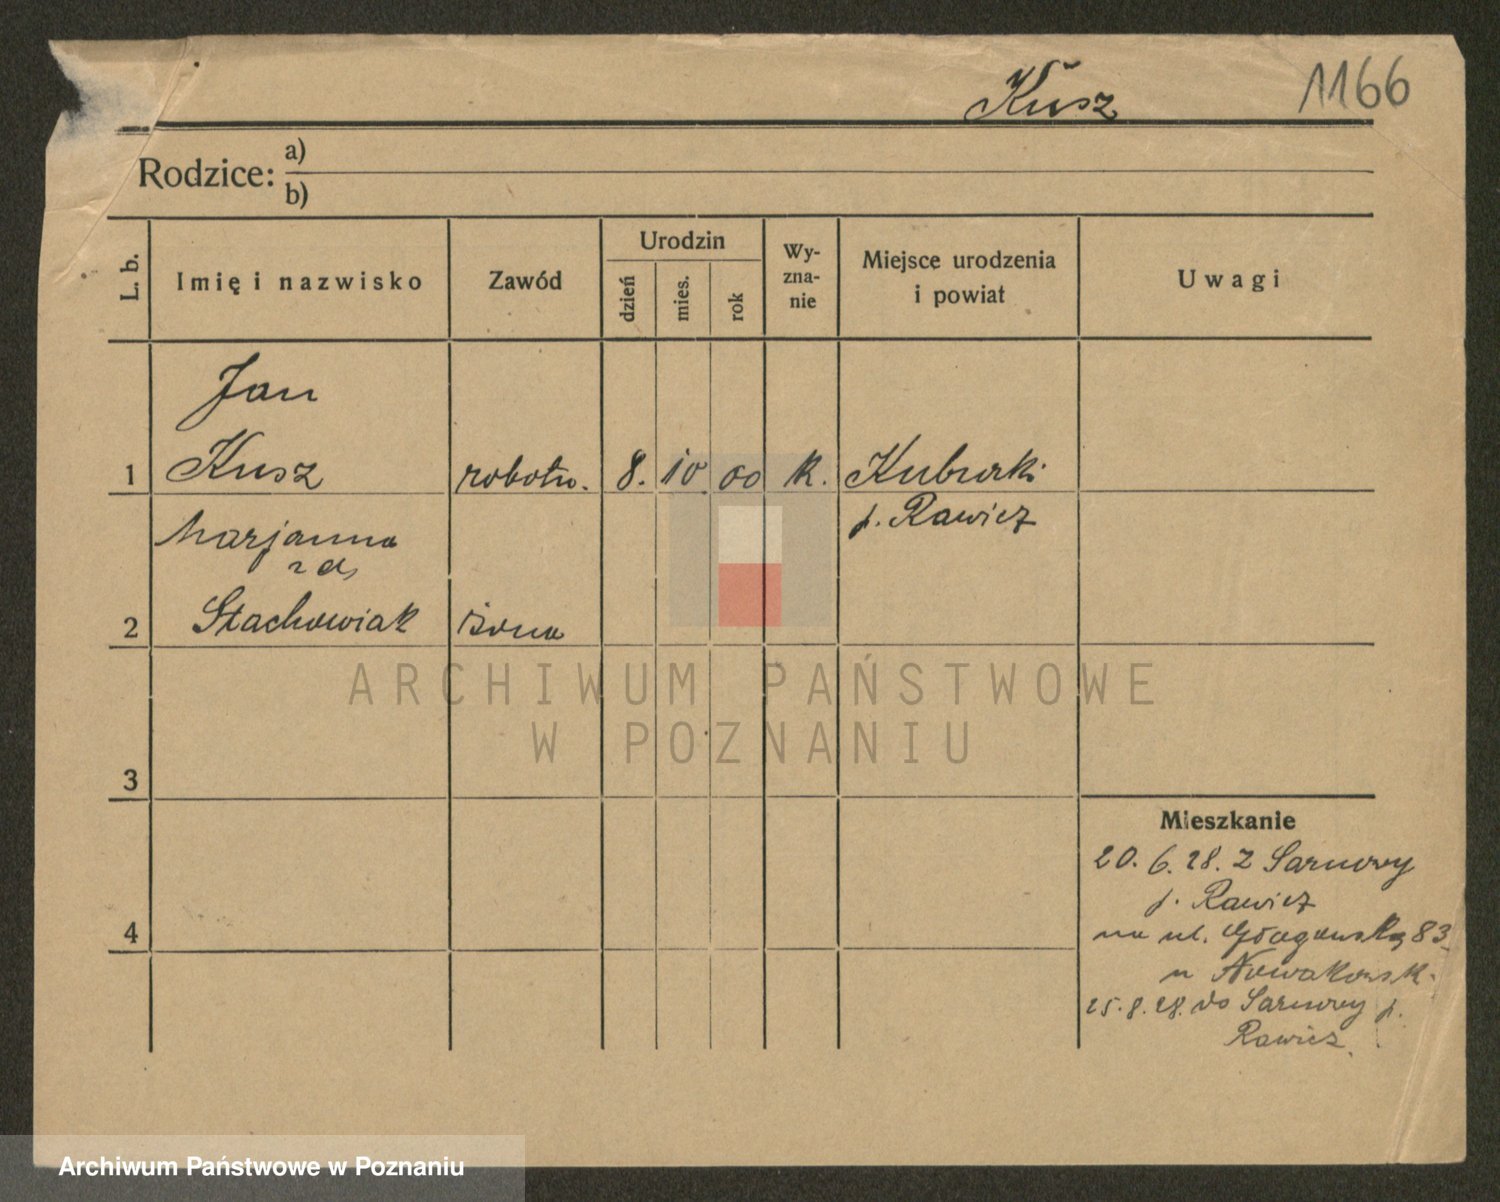 Kusz 1166
Rodzice: a)
b)
L. b. Imię i nazwisko Zawód Urodzin dzień mies. rok Wy-
zna-
nie Miejsce urodzenia
i powiat Uwagi
Jan
1 Kusz robotn. 8. 10 00 k.
p. Rawicz
Marjanna
zd.
2 Stachowiak żona
3
4
Mieszkanie
20. 6. 28. z Sarnowy
p. Rawicz
na ul. Głogowską 83
u Nowakowsk.
25. 8. 28. do Sarnowy p.
Rawicz.
ARCHIWUM PAŃSTWOWE
W POZNANIU
Archiwum Państwowe w Poznaniu